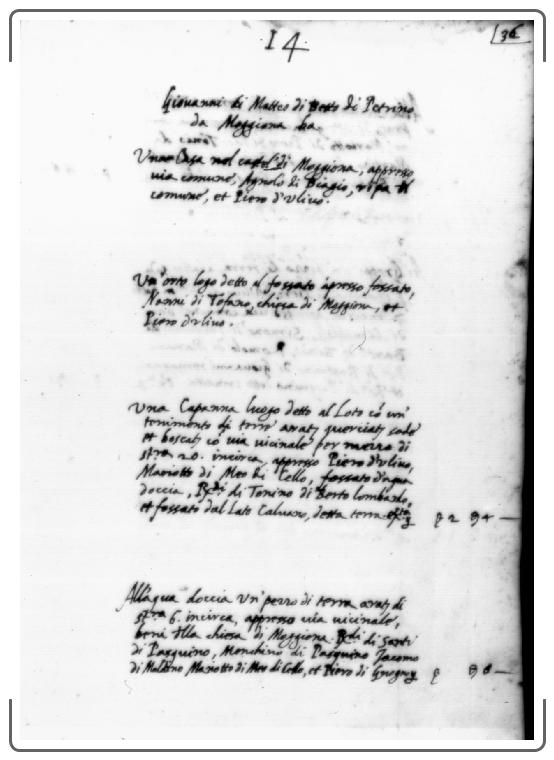 14
36
Giovanni di Matteo di Betto di Petrino
da Moggiona ha
Una Casa nel castel. di Moggiona, appresso
via comune, Agnolo di Biagio, ripa del
comune, et Piero d'Ulivo.
Un orto logo detto al fossato apresso fossato,
Nanni di Tofano, chiesa di Moggiona, et
Piero d'ulivo.
Una Capanna luogo detto al Loto cō un
tenimento di terre arat; querciat; sode
et boscat; cō via vicinale per mezzo di
stra 20. incirca, appresso Piero d'ulivo,
Mariotto di Meo di Cello, fossato d'aqua
doccia, Rēdi di Tonino di Berto lombardo,
et fossato dal Lato Calvano, detta terra
2 94 —
All'aqua doccia un pezzo di terra arat; di
stra 6. incirca, appresso via vicinale,
beni della chiesa di Moggiona Rēdi di Santi
di Pasquino, Monchino di Pasquino Jacomo
di Maldino Mariotto di Meo di Cello, et Piero di